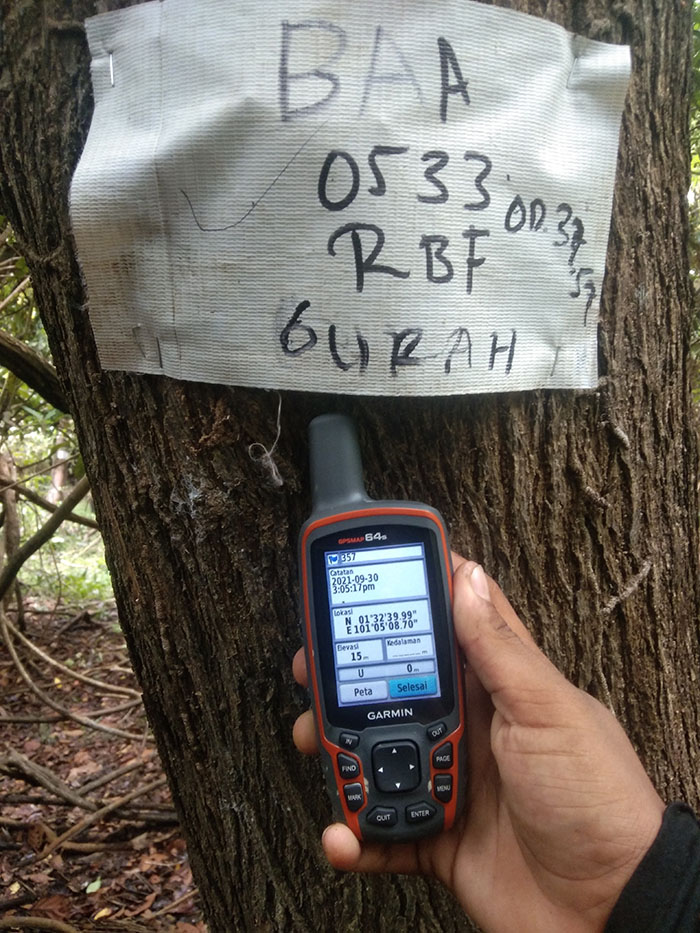 BAA
0533
RBF
GURAH
OD.37
GPSMAP 64s
357
Catatan
2021-09-30
3:05:17pm
Lokasi
N 01°32'39.99"
E 101°05'08.70"
Elevasi
Kedalaman
15 m
U
0 m
Peta
Selesai
GARMIN
IN
OUT
FIND
PAGE
MARK
MENU
QUIT
ENTER